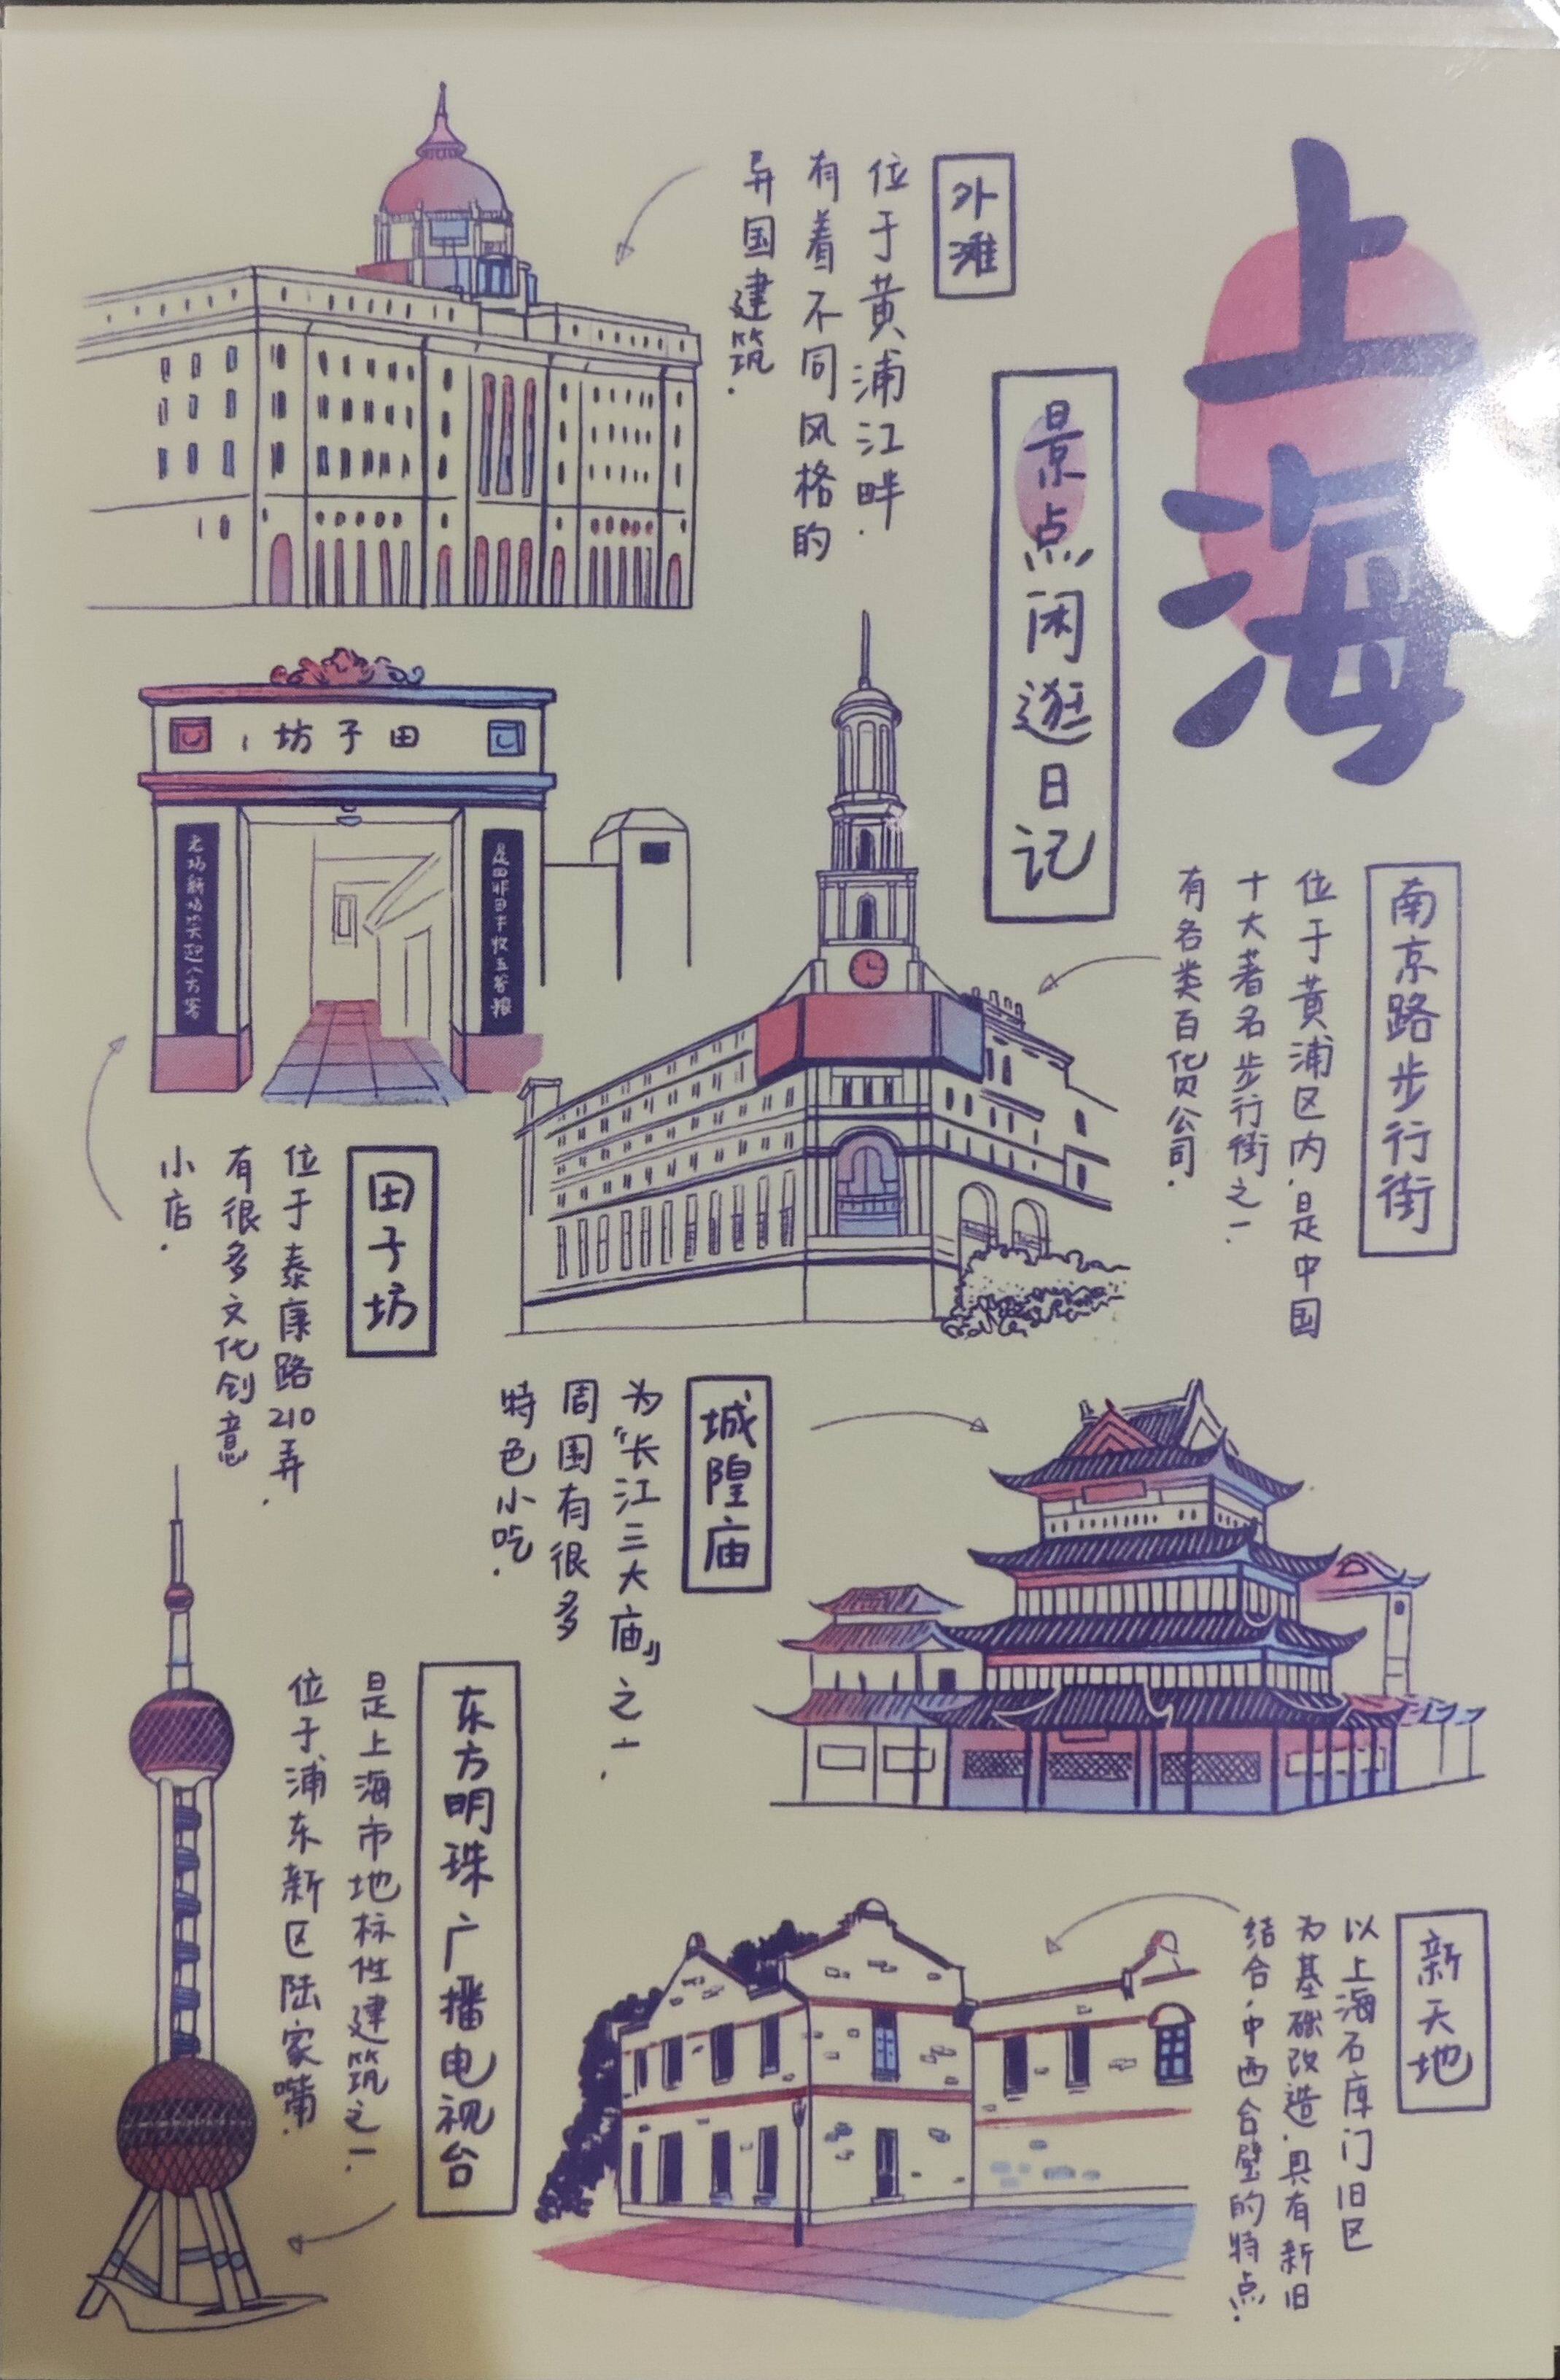 上海
景点闲逛日记
外滩
位于黄浦江畔.
有着不同风格的
异国建筑.
南京路步行街
位于黄浦区内.是中国
十大著名步行街之一.
有各类百货公司.
田子坊
田子坊
位于泰康路210弄.
有很多文化创意
小店.
城隍庙
为『长江三大庙』之一.
周围有很多
特色小吃.
东方明珠广播电视台
是上海市地标性建筑之一.
位于浦东新区陆家嘴.
新天地
以上海石库门旧区
为基础改造.具有新旧
结合.中西合璧的特点.